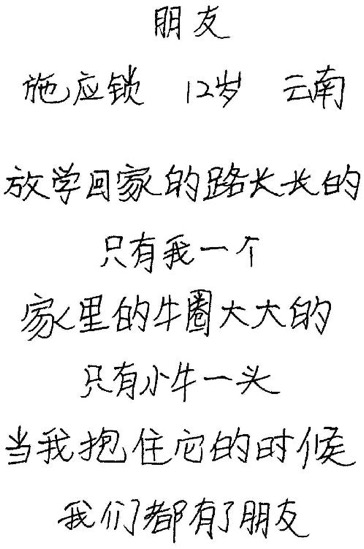 朋友
施应锁 12岁 云南
放学回家的路长长的
只有我一个
家里的牛圈大大的
只有小牛一头
当我抱住它的时候
我们都有了朋友